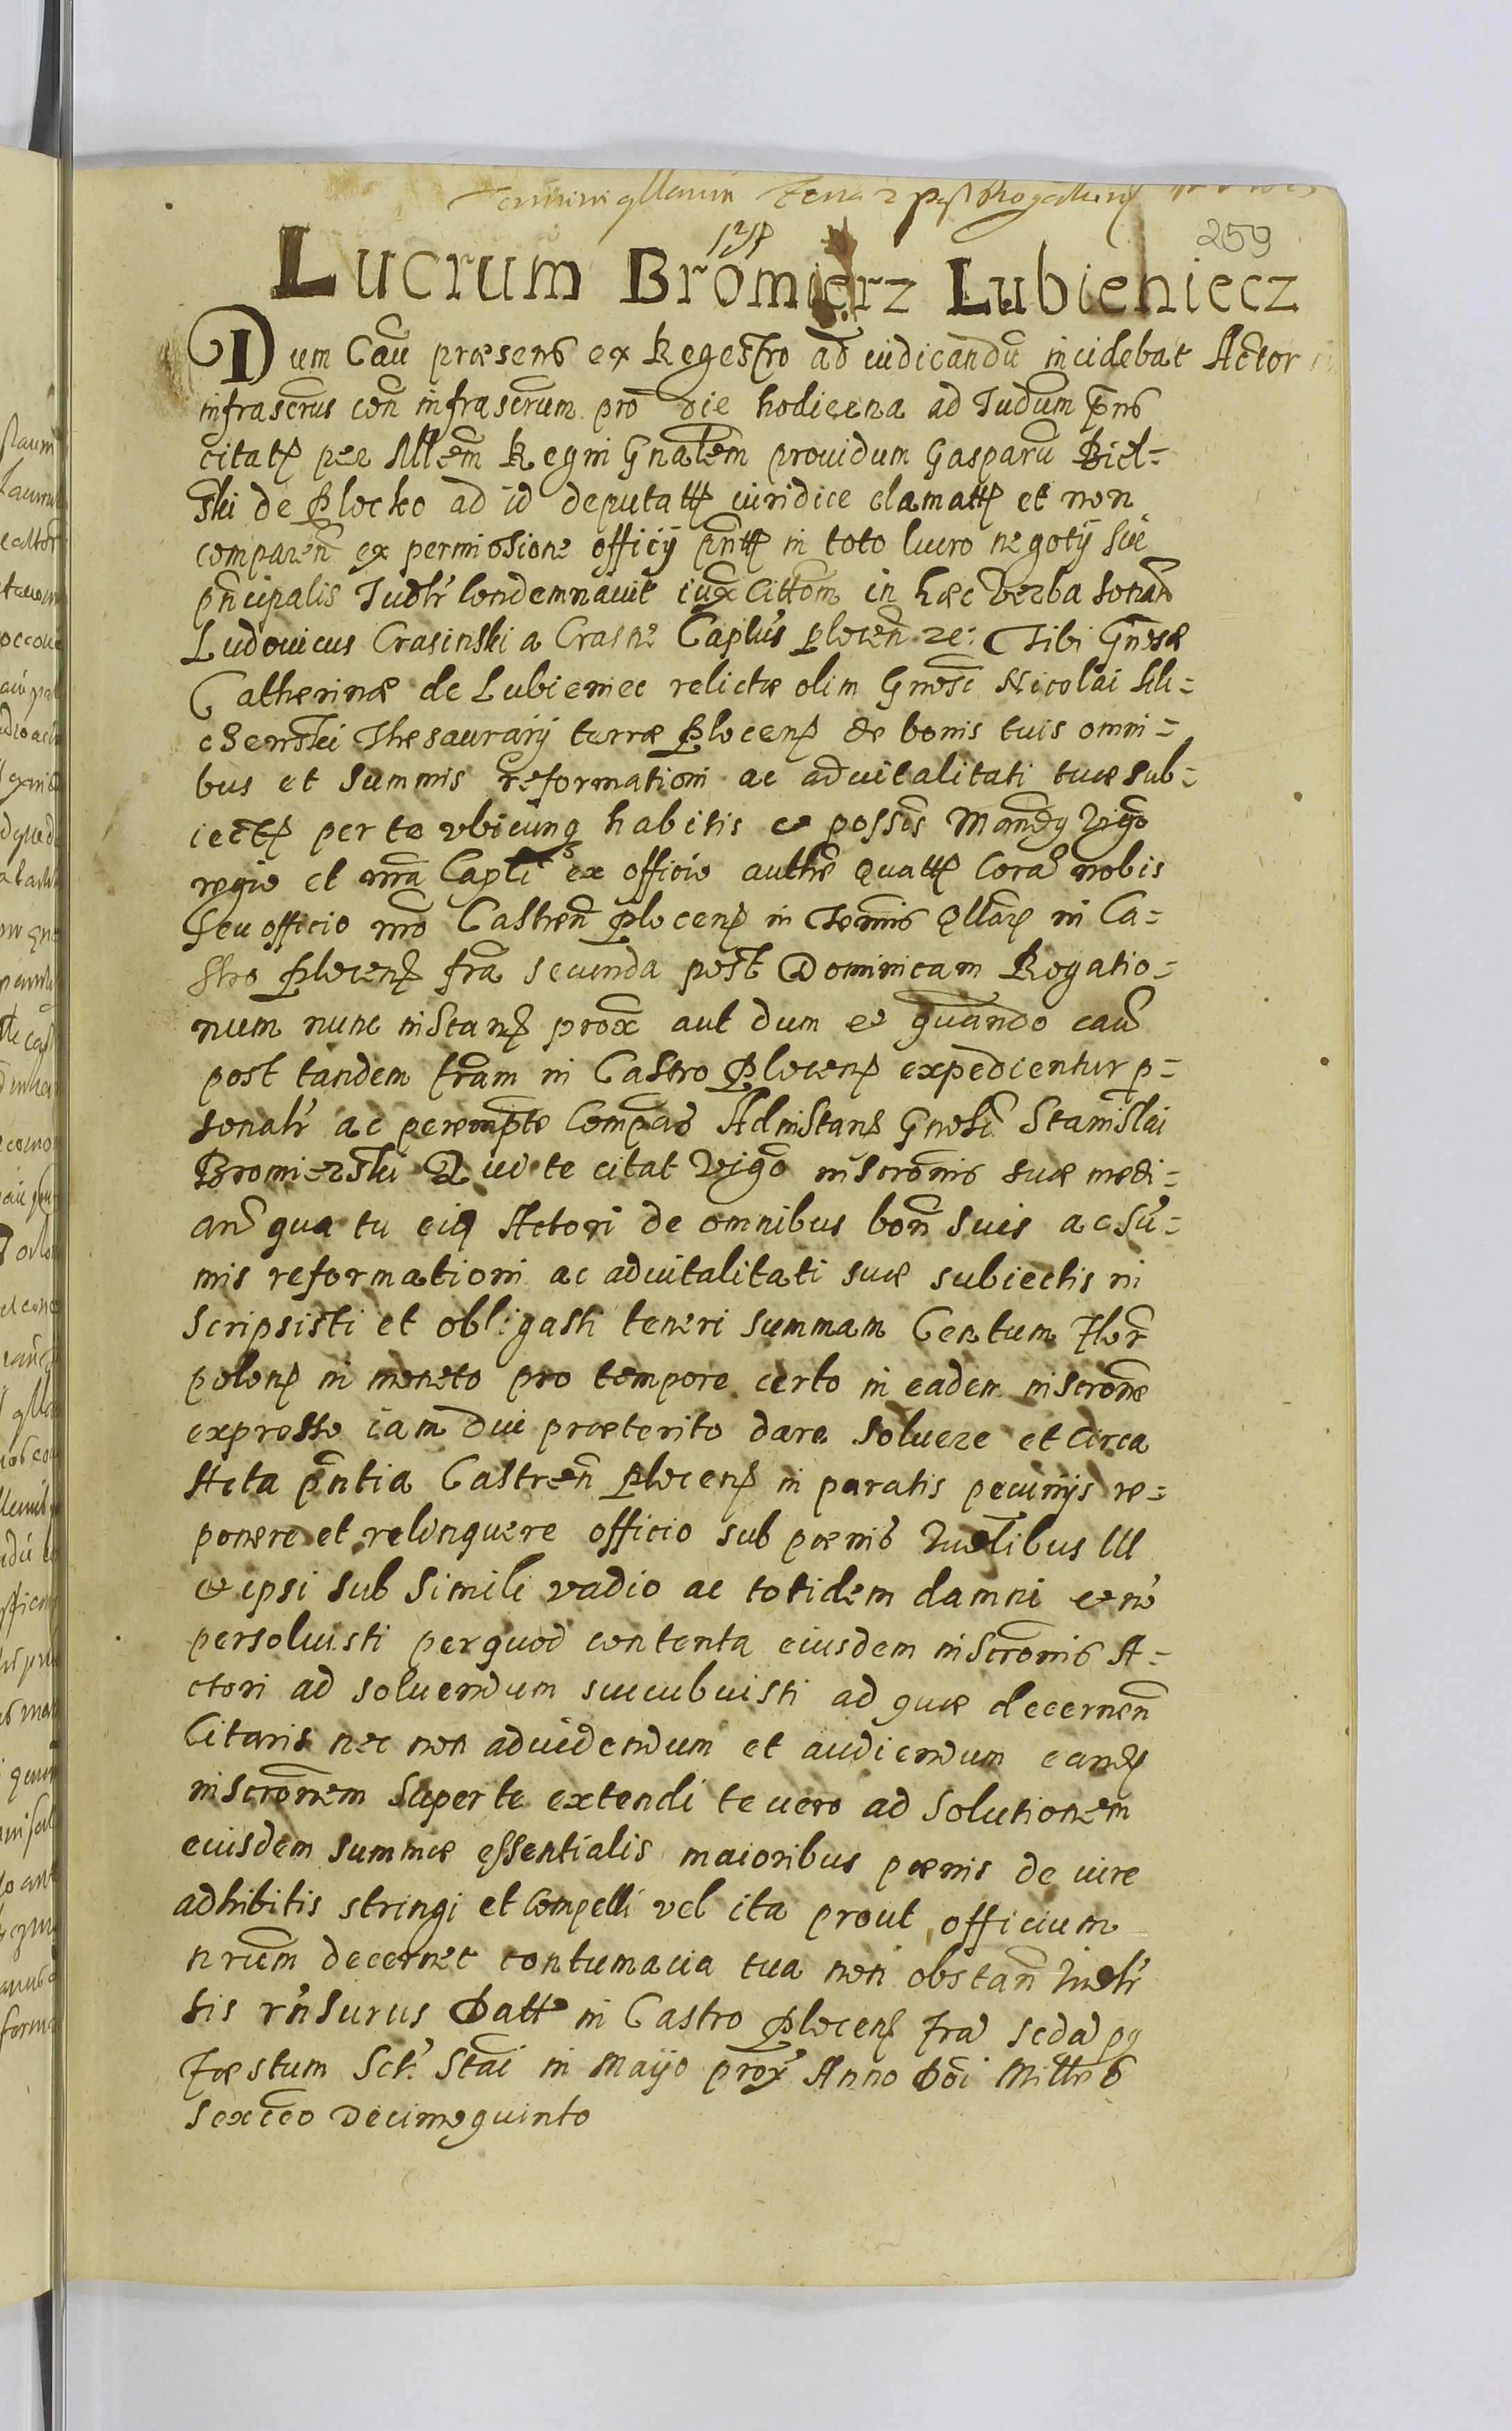 Termini qllarum Feria 2 post Rogationum
259
Lucrum Bromierz Lubieniecz
Dum Cau præsens ex Regestro ad iudicandũ incidebat Actor
infrascrus con infrascrum pro die hodierna ad Judum pns
citatꝭ per Mlem Regni Gnalem prouidum Gasparũ Biel=
ski de Plocko ad id deputattꝭ iuridice clamattꝭ et non
comparen ex permissione officij pnttꝭ in toto lucro negotij sui
pncipalis Judlr condemnauit iux Cittom in hæc verba sonan
Ludouicus Crasinski a Crasne Caplus plocen ze: Tibi Gnosæ
Catherinæ de Lubieniec relictæ olim Gnosi Nicolai Mi=
chewski Thesaurarij terræ Plocenꝭ de bonis tuis omni=
bus et summis reformationi ac aduitalitati tuæ sub=
iectꝭ per te vbicunqꝫ habitis et possis Mandꝭ vigo
regio et nra Capli ex officio auth quattꝭ cora nobis
seu officio nro Castren Plocenꝭ in Termis qllarꝭ in Ca=
stro Plocenꝭ fra secunda post Dominicam Rogatio=
num nunc instanꝭ prox aut dum et quando cau
post tandem fram in Castro Plocenꝭ expedientur p=
sonalr ac perempte compas Ad instanꝭ Gnosi Stanislai
Bromierski Qui te citat vigo inscronis suæ medi=
an qua tu eiꝰ Actori de omnibus bon suis ac su=
mis reformationi ac aduitalitati suæ subiectis in
scripsisti et obligasti teneri summam Centum Flor
polonꝭ in moneto pro tempore certo in eadem inscrone
expresso iam diu præterito dare soluere et circa
Acta pntia Castren Plocenꝭ in paratis pecunijs re=
ponere et relinquere officio sub pænis Judlibus III
et ipsi sub simili vadio ac totidem damni et nō
persoluisti perquod contenta eiusdem inscronis A=
ctori ad soluendum succubuisti ad quæ decernen
Citaris nec non aduidendum et audiendum eandꝭ
inscronem super te extendi te uero ad solutionem
eiusdem summæ essentialis maioribus pænis de iure
adhibitis stringi et compelli vel ita prout officium
nrum decernet contumacia tua non obstan Judlr
sis rnsurus Datt in Castro Plocenꝭ fra scda pꝰ
Fæstum Scti Stai in Maijo prox Anno Doi Millmo
sexcēo decimo quinto